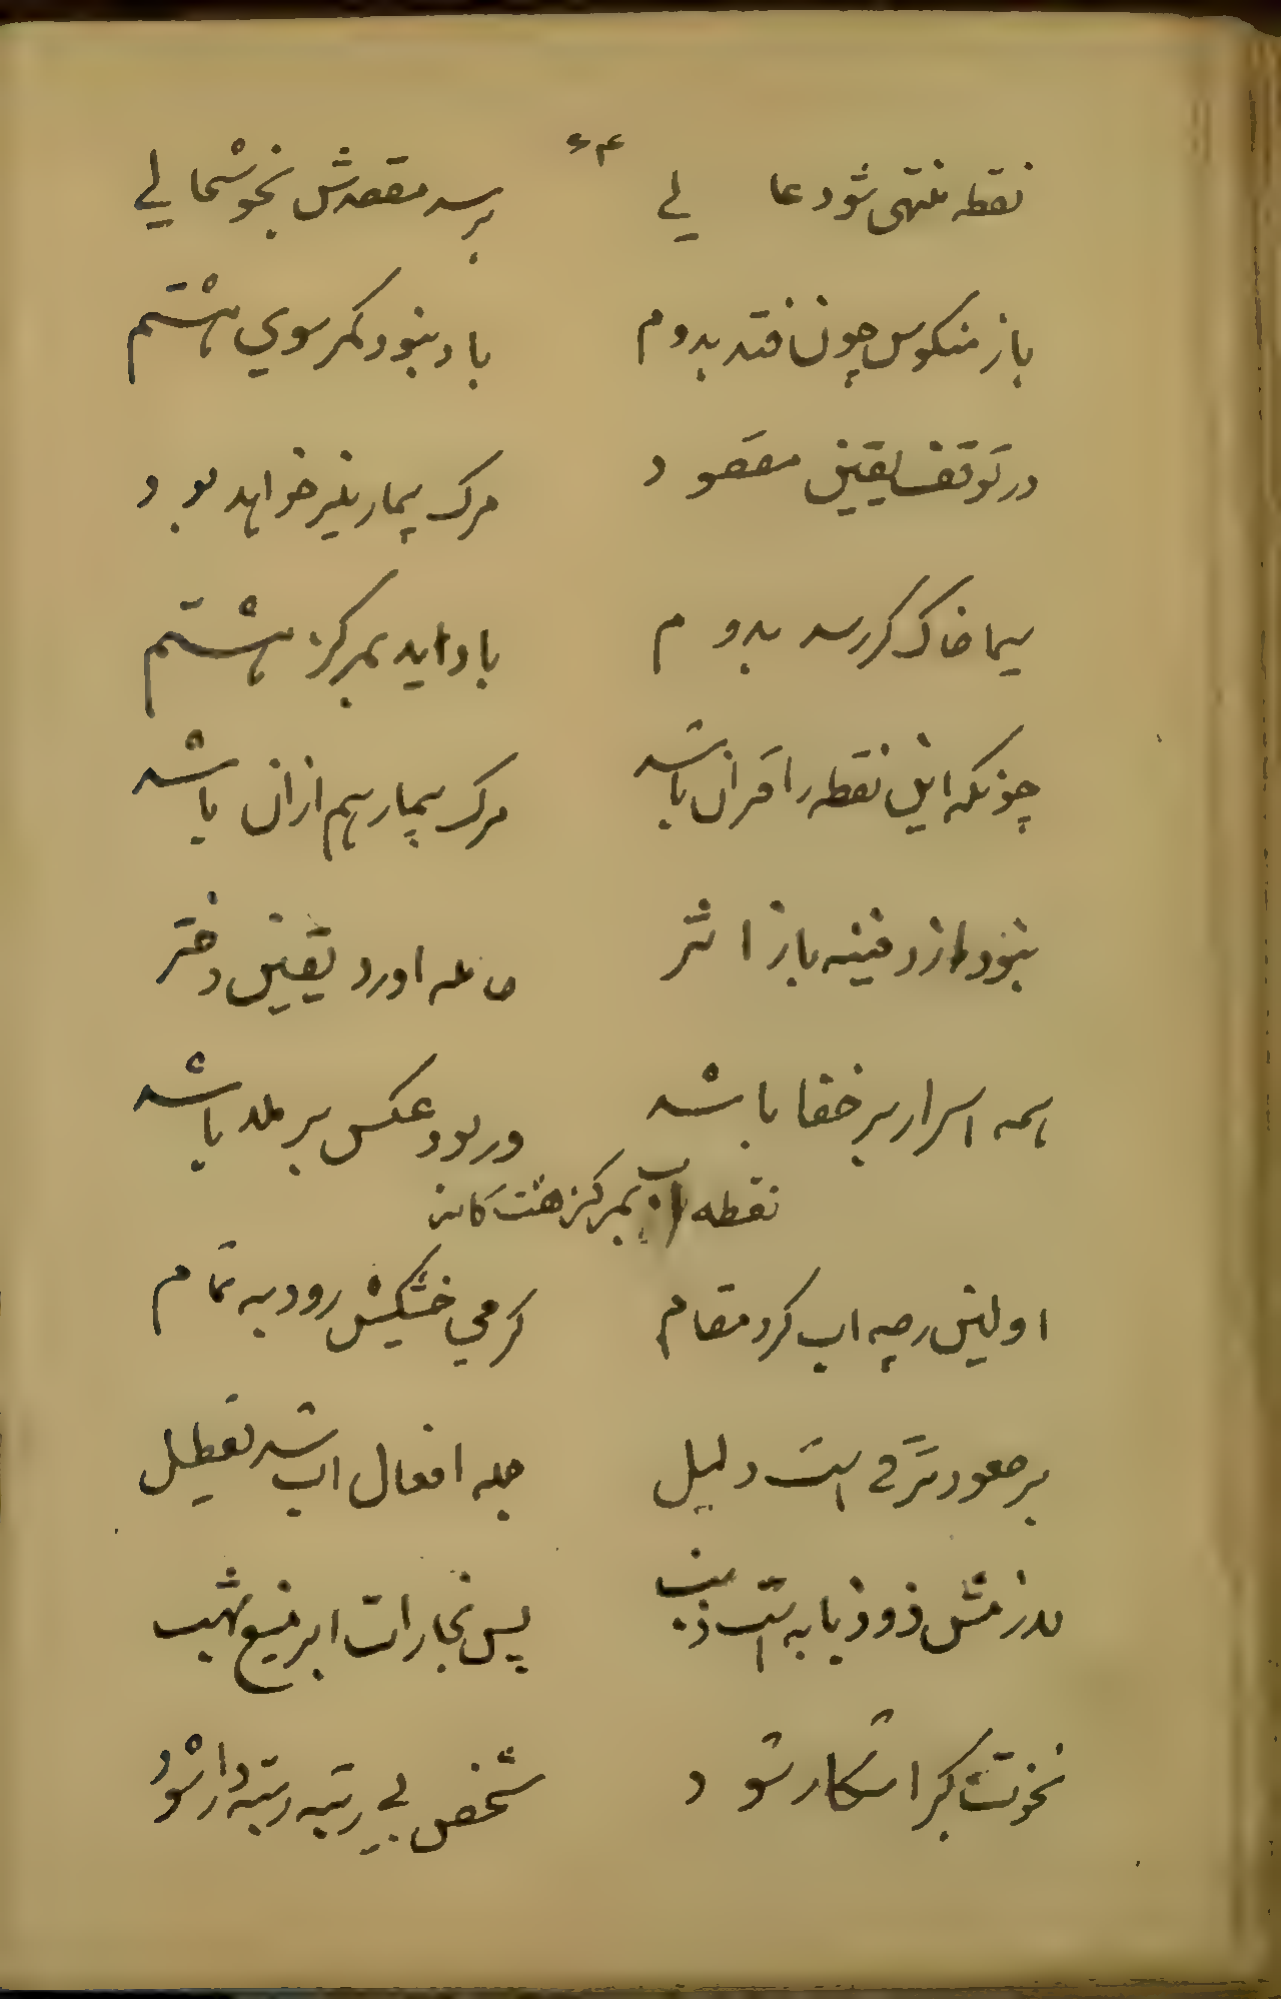 ۶۴
نقطه منتهی شود عا لے برسد مقصدش بخوشحالے
باز منکوس چون فتد بدوم باد نبود کمر سوی هشتم
در توقف یقین مقصود مرک بیمار نیز خواهد بود
سیما خاک کر رسد بدوم باد اید بمرکز هشتم
چونکه این نقطه را قران باشد مرک بیمار هم ازان باشد
نبود از دفینه باز اثر حامله اورد یقین دختر
همه اسرار بر خفا باشد ور بود عکس بر ملد باشد
نقطه اب بمرکز هفت کانه
اولین رچه اب کرد مقام کرمی خشکیش رود به تمام
بر صعود ترقے است دلیل جمله افعال اب شد تعطیل
ذو ذبابه است ذنب پس بخارات ابر منبع شهب
نخوت کبر اشکار شود شخص بے رتبه رتبه دار شود